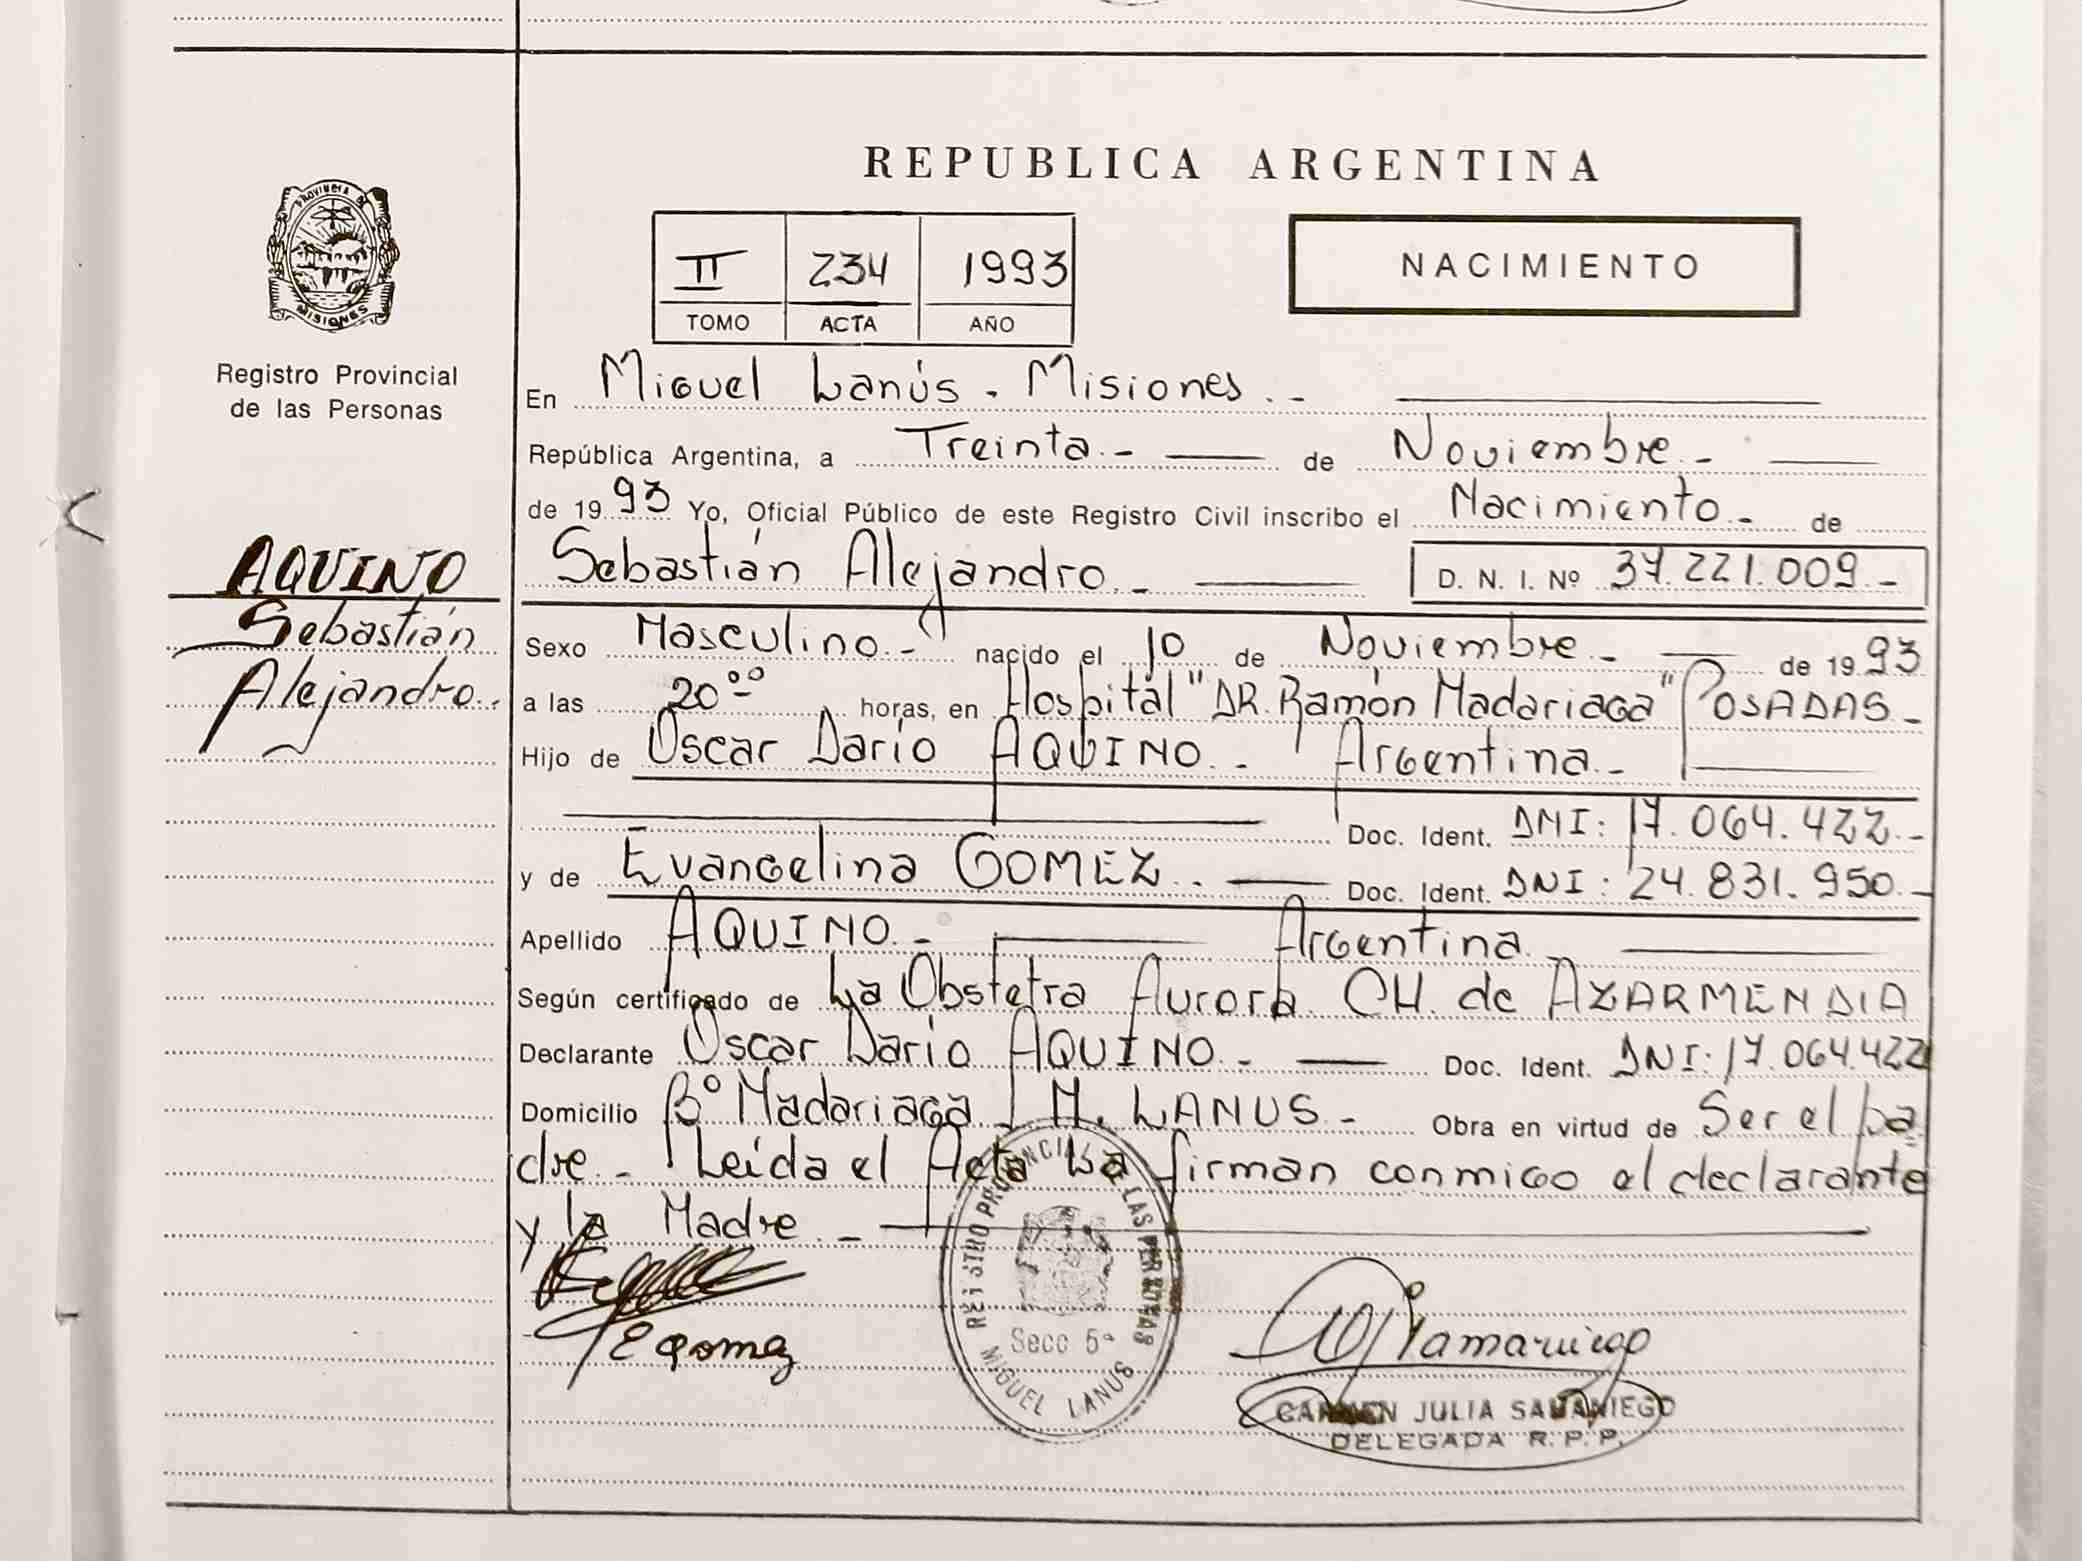 REPUBLICA ARGENTINA
PROVINCIA DE
MISIONES
Registro Provincial
de las Personas
II 234 1993
TOMO ACTA AÑO
NACIMIENTO
En Miguel Lanús - Misiones.-
República Argentina, a Treinta.- de Noviembre.-
de 1993 Yo, Oficial Público de este Registro Civil inscribo el Nacimiento.- de
AQUINO
Sebastián
Alejandro.
Sebastián Alejandro.- D. N. I. Nº 37.221.009.-
Sexo Masculino.- nacido el 10 de Noviembre.- de 1993
a las 20°° horas, en Hospital "DR. Ramón Madariaga" POSADAS.-
Hijo de Oscar Darío AQUINO.- Argentina.-
Doc. Ident. DNI: 17.064.422.-
y de Evangelina GOMEZ.- Doc. Ident. DNI: 24.831.950.-
Apellido AQUINO.- Argentina.
Según certificado de La Obstetra Aurora CH. de AZARMENDIA
Declarante Oscar Darío AQUINO.- Doc. Ident. DNI: 17.064.422
Domicilio Bº Madariaga - M. LANUS.- Obra en virtud de Ser el pa
dre.- Leída el Acta La firman conmigo el declarante
y la Madre.-
E Gomez
REGISTRO PROVINCIAL DE LAS PERSONAS
Secc 5ª
MIGUEL LANUS
CARMEN JULIA SAMANIEGO
DELEGADA R. P. P.